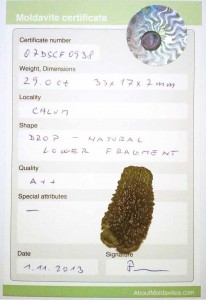 Moldavite certificate
Certificate number
07DSCF0938
Weight, Dimensions
29.0ct 33x17x7mm
Locality
CHLUM
Shape
DROP - NATURAL
LOWER FRAGMENT
Quality
A++
Special attributes
—
Date Signature
1.11.2013
AboutMoldavites.com